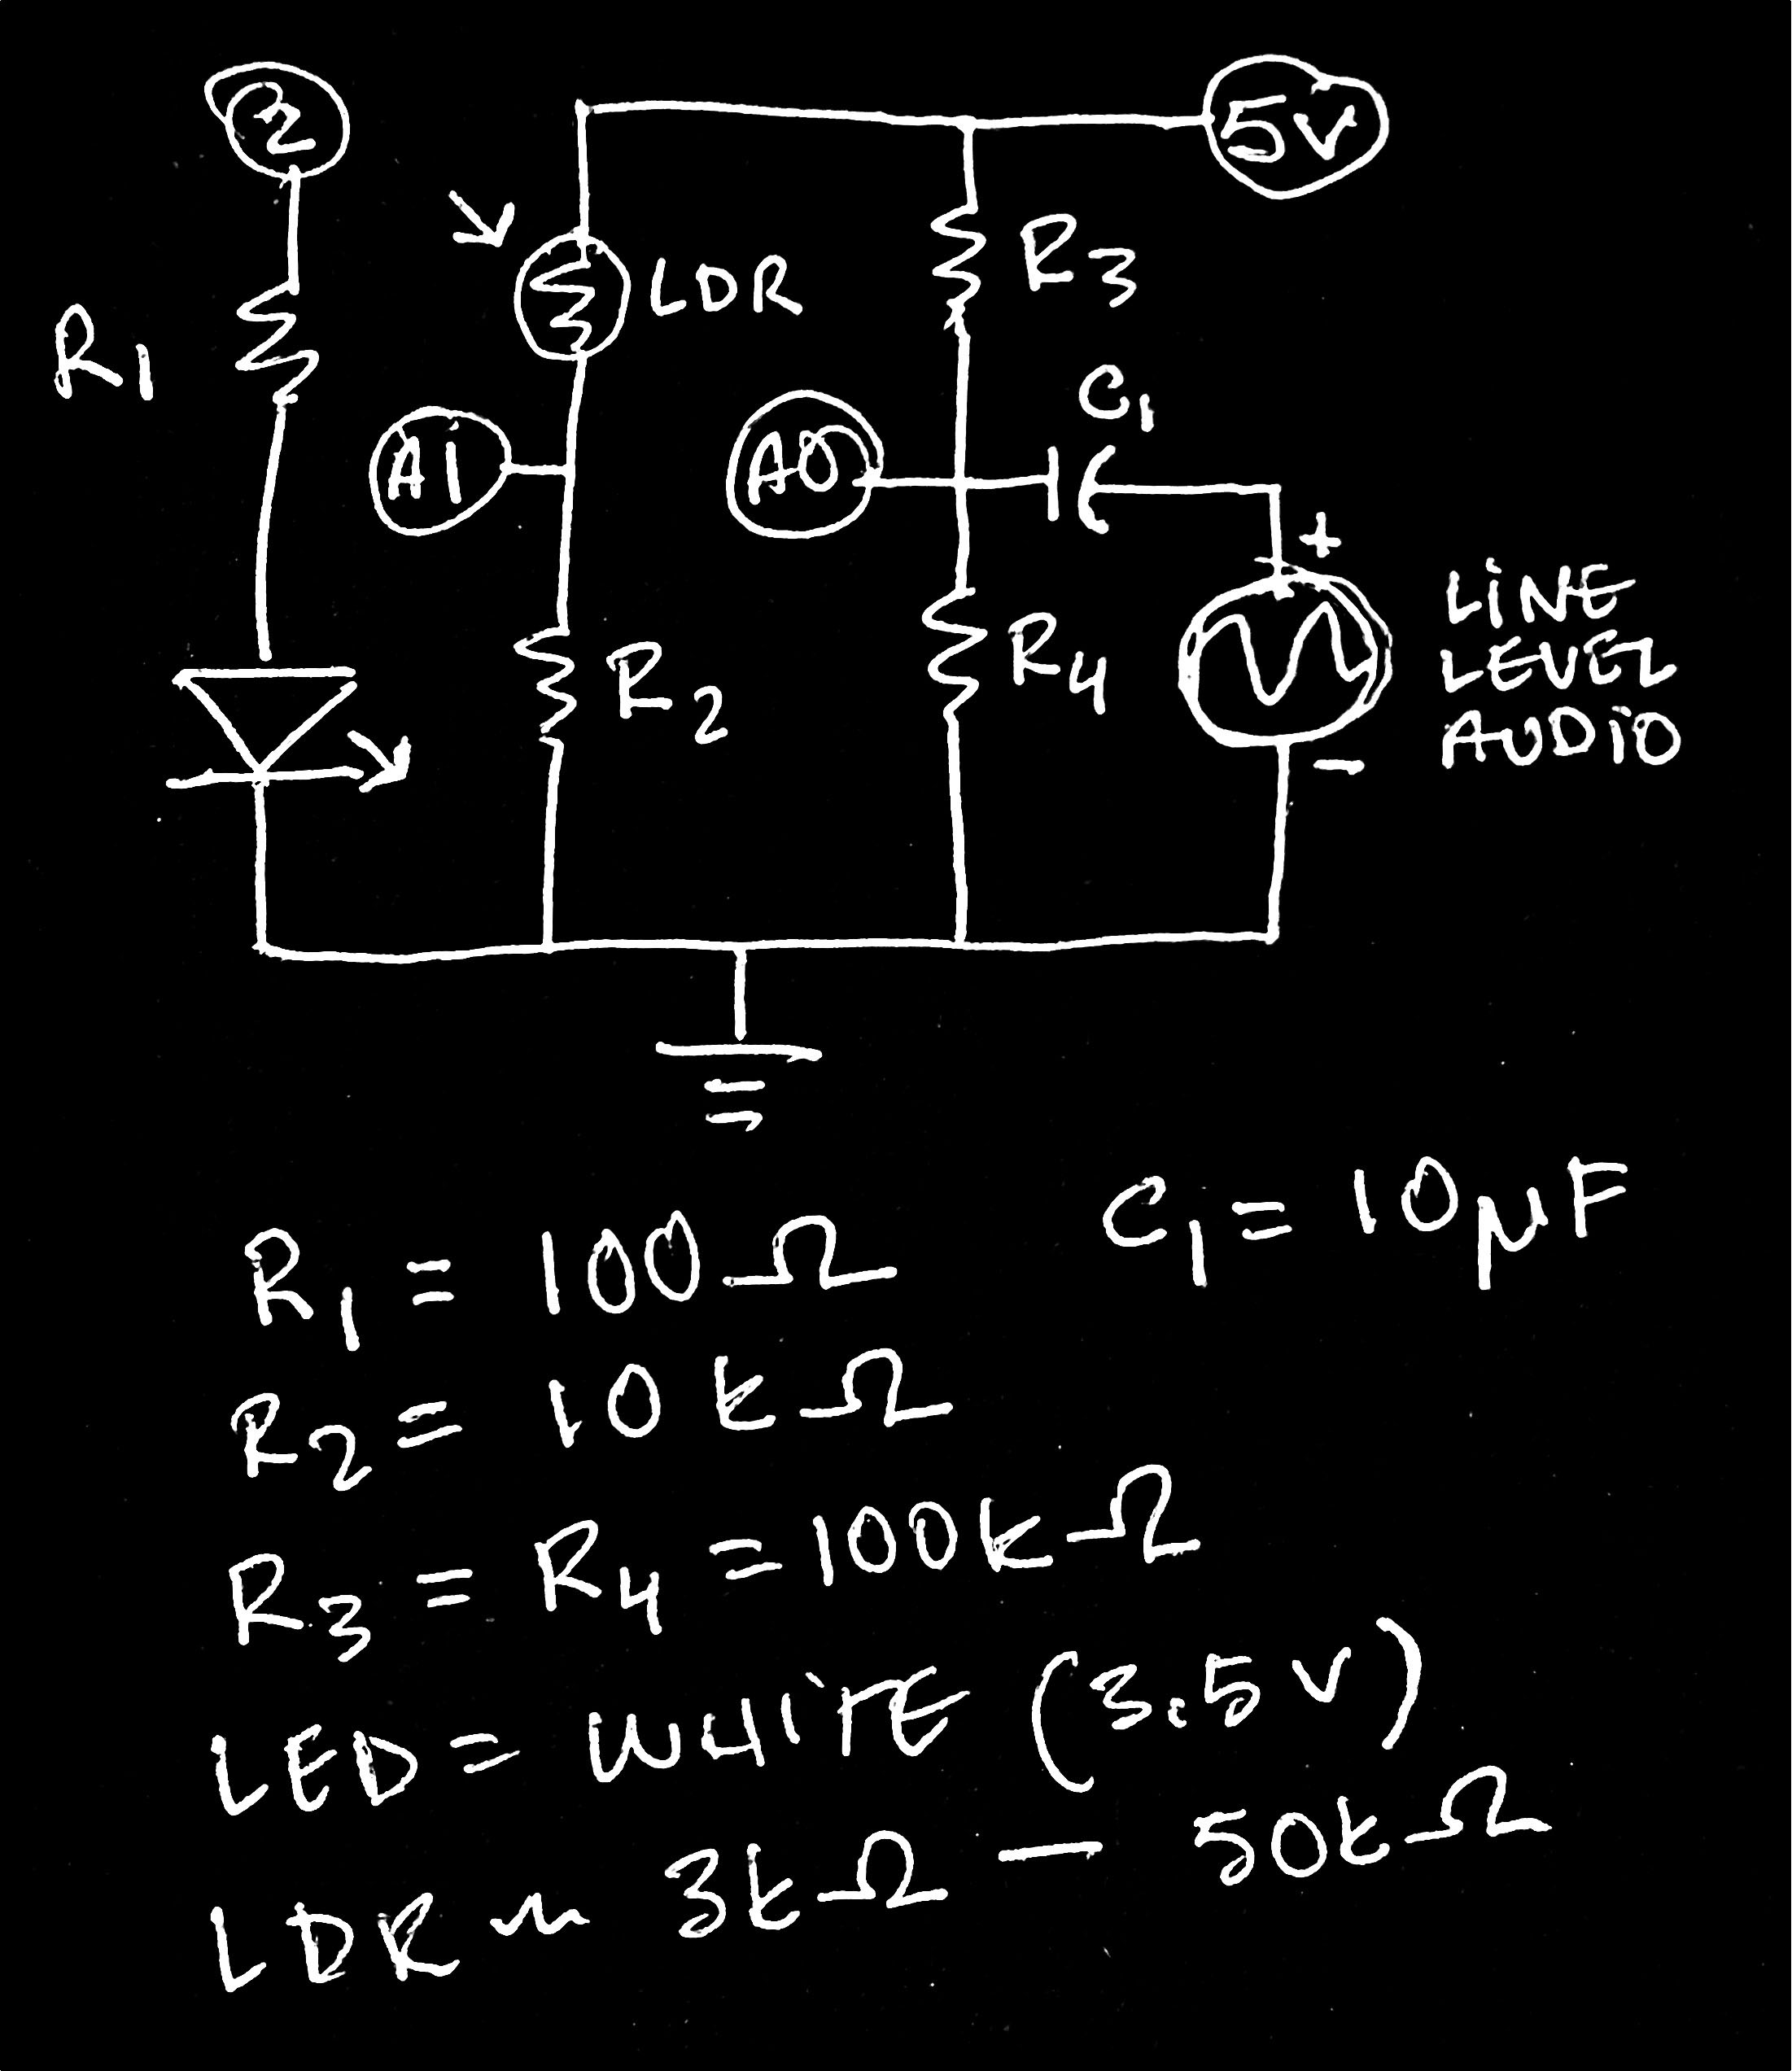 2
5V
R1
LDR
R3
C1
A1
A0
+
LINE
LEVEL
AUDIO
R2
R4
-
C1 = 10μF
R1 = 100Ω
R2 = 10kΩ
R3 = R4 = 100kΩ
LED = WHITE (3.5V)
LDR ~ 3kΩ — 50kΩ